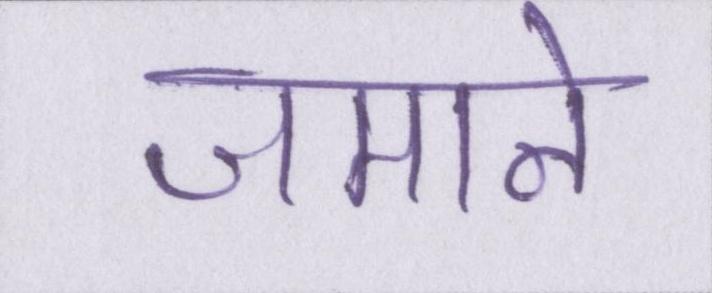 जमाने